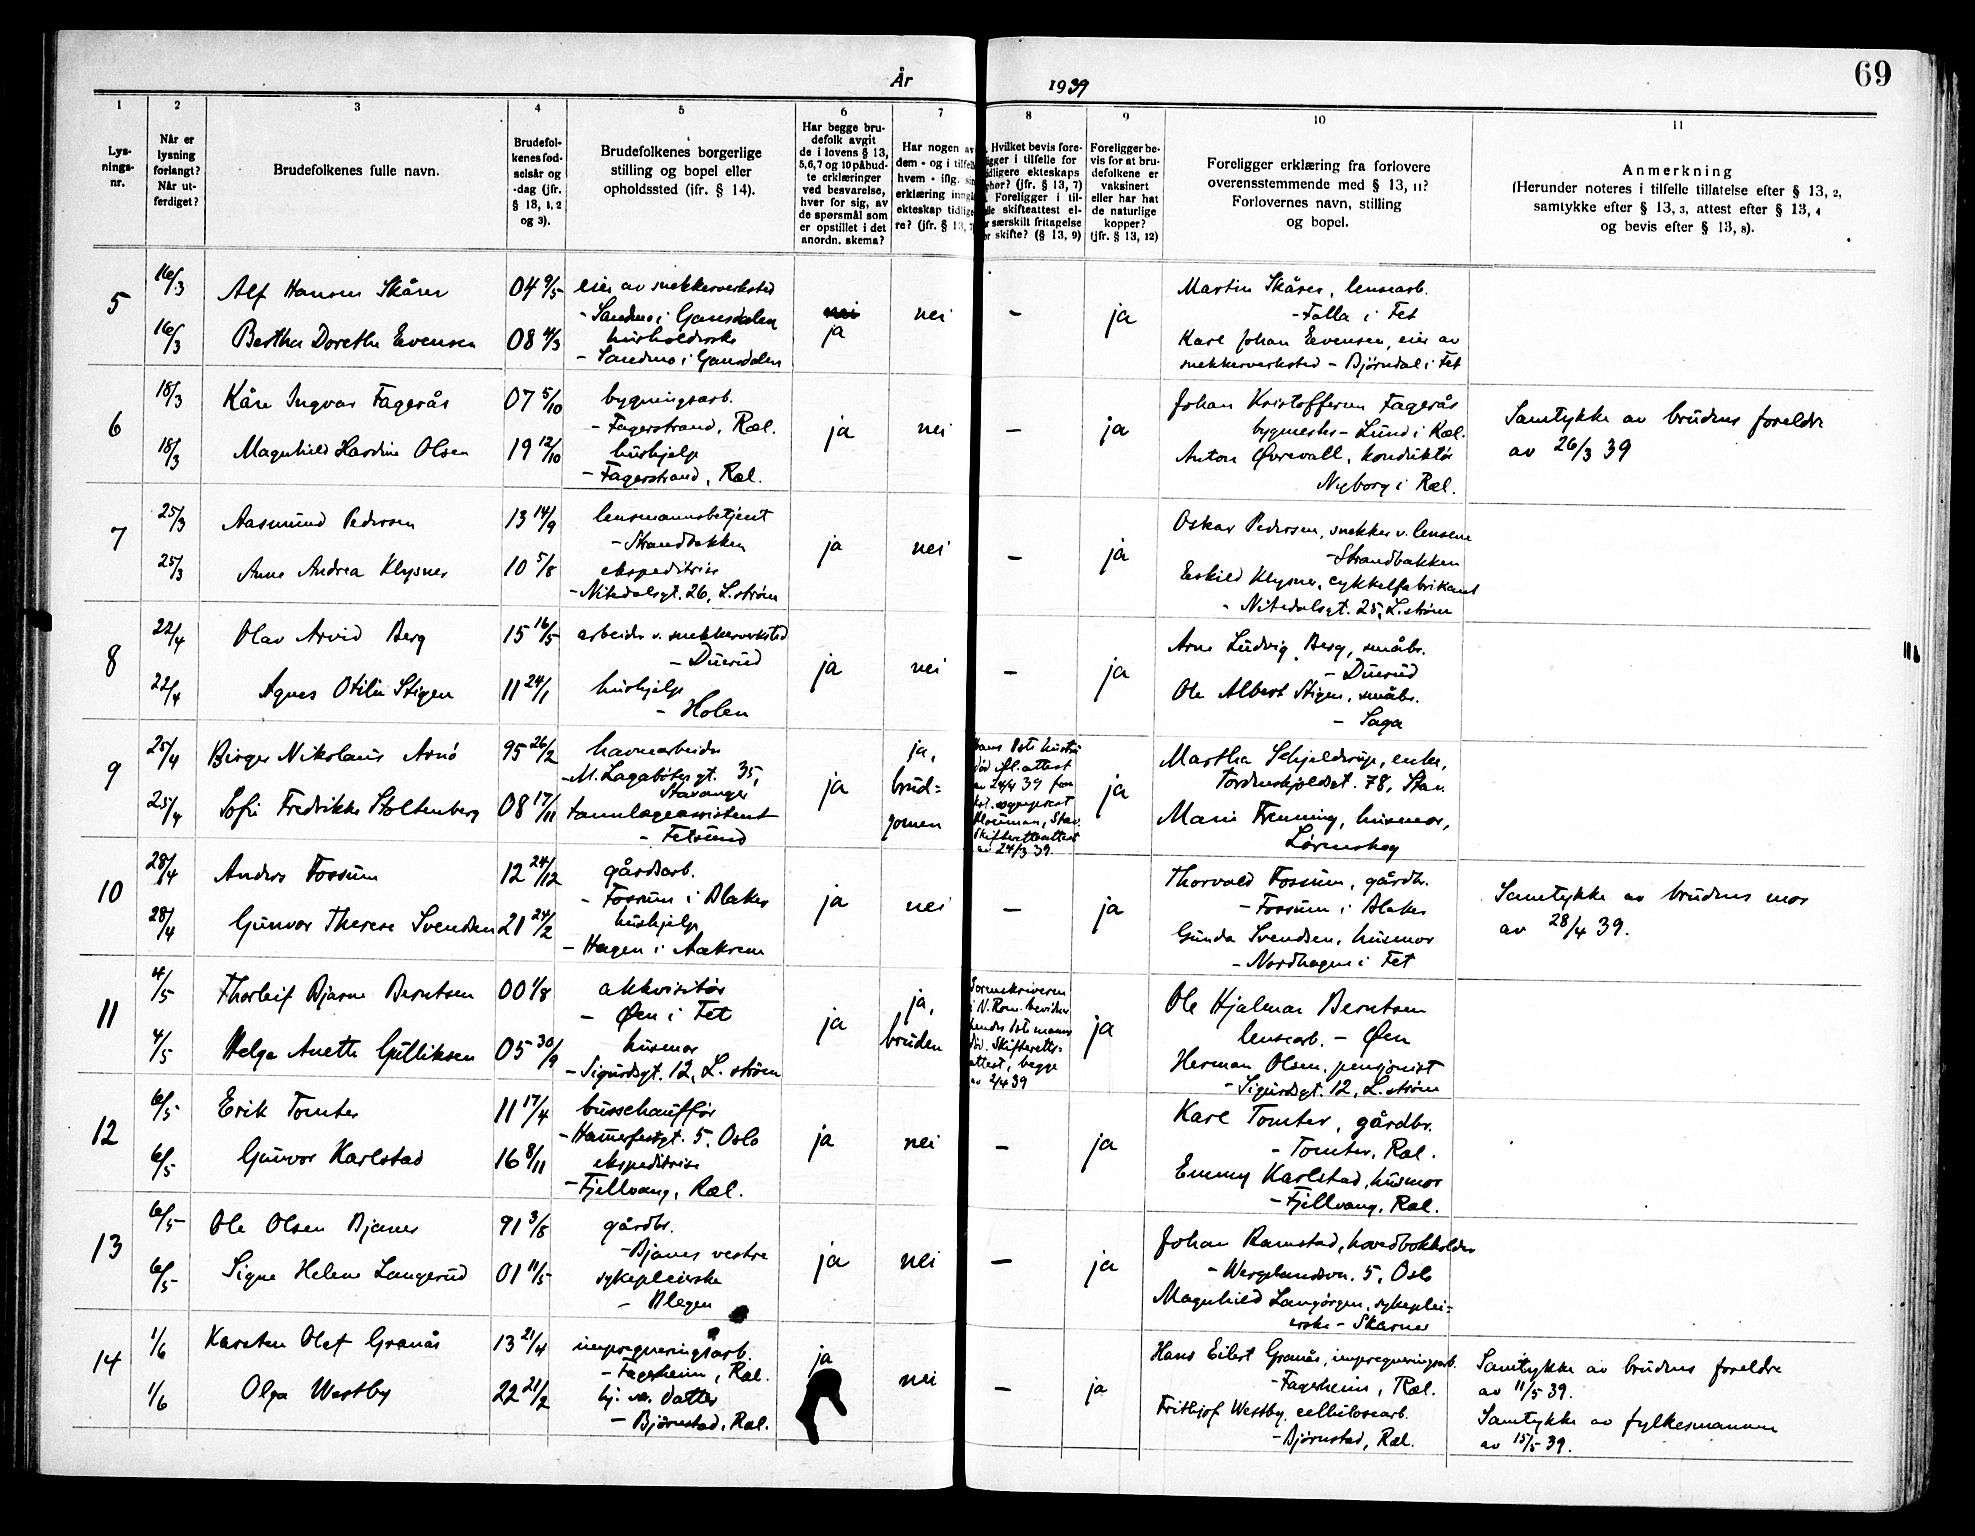 69
År 1939
1
2
3
4
5
6
7
8
9
10
11
Lys-
nings-
nr.
Når er
lysning
forlangt?
Når ut-
ferdiget?
Brudefolkenes fulle navn.
Brudefol-
kenes fød-
selsår og
-dag (jfr.
§ 13, 1, 2
og 3).
Brudefolkenes borgerlige
stilling og bopel eller
opholdssted (ifr. § 14).
Har begge bru-
defolk avgit
de i lovens § 13,
5, 6, 7 og 10 påbud-
te erklæringer
ved besvarelse,
hver for sig, av
de spørsmål som
er opstillet i det
anordn. skema?
Har nogen av
dem - og i tilfelle
hvem - iflg.
erklæring inngå
ekteskap tidlige
re? (jfr. § 13, 7
Hvilket bevis fore-
ligger i tilfelle for
tidligere ekteskaps
ophør? (jfr. § 13, 7)
Foreligger i til-
felle skifteattest el-
ler særskilt fritagelse
for skifte? (§ 13, 9)
Foreligger be-
vis for at bru-
defolkene er
vaksinert
eller har hat
de naturlige
kopper?
(jfr. § 13, 12)
Foreligger erklæring fra forlovere
overensstemmende med § 13, 11?
Forlovernes navn, stilling
og bopel.
Anmerkning
(Herunder noteres i tilfelle tillatelse efter § 13, 2,
samtykke efter § 13, 3, attest efter § 13, 4
og bevis efter § 13, 8).
5
16/3 Alf Hansen Skårer 04 9/5 eier av snekkerverksted
- Sandmo i Gansdalen
16/3 Bertha Dorethe Evensen 08 4/3 husholderske
- Sandmo i Gansdalen
nei
ja
nei
-
ja
Martin Skårer, lensearb.
- Falla i Fet
Karl Johan Evensen, eier av
snekkerverksted - Bjørndal i Fet
6
18/3 Kåre Ingvar Fagerås 07 5/10 bygningsarb.
- Fagerstrand, Ræl.
18/3 Magnhild Hardine Olsen 19 12/10 hushjelp
- Fagerstrand, Ræl.
ja
nei
-
ja
Johan Kristoffersen Fagerås
bygmester - Lund i Ræl.
Anton Øvrevall, konduktør
Nyborg i Ræl.
Samtykke av brudens foreldre
av 26/3 39
7
25/3 Aasmund Pedersen 13 14/9 lensmannsbetjent
- Strandbakken
25/3 Anne Andrea Klysner 10 5/8 ekspeditrise
- Nitedalsgt. 26, L.strøm
ja
nei
-
ja
Oskar Pedersen, snekker v. lensene
- Strandbakken
Eskild Klysner, cykkelfabrikant
- Nitedalsgt. 25, L.strøm
8
22/4 Olav Arvid Berg 15 16/5 arbeider v. snekkerverksted
- Duerud
22/4 Agnes Otilie Stigen 11 24/1 hushjelp
- Holen
ja
nei
-
ja
Arne Ludvig Berg, småbr.
- Duerud
Ole Albert Stigen, småbr.
- Saga
9
25/4 Birger Nikolaus Arnø 95 26/2 havnearbeider
- M. Lagabøtersgt. 35,
Stavanger
25/4 Sofie Fredrikke Stoltenberg 08 17/11 tannlegeassistent
- Fetsund
ja
ja,
brud=
gomen
Hans 1ste hustru
død ifl. attest
av 24/4 39 fra
res. sogneprest
Skifterettsattest
av 24/3 39.
ja
Martha Schjelderup, enke,
Tordenskjoldsgt. 78, Stav.
Marie Frenning, husmor,
Lørenskog
10
28/4 Anders Fossum 12 24/12 gårdsarb.
- Fossum i Blaker
28/4 Gunvor Therese Svendsen 21 24/2 hushjelp
- Hagen i Aakrene
ja
nei
-
ja
Thorvald Fossum, gårdbr.
- Fossum i Blaker
Gunda Svendsen, husmor
- Nordhagen i Fet
Samtykke av brudens mor
av 28/4 39.
11
4/5 Thorleif Bjarne Berntsen 00 1/8 akkvisitør
- Øen i Fet
4/5 Helga Anette Gulliksen 05 30/9 husmor
- Sigurdsgt. 12, L. strøm
ja
ja,
bruden
Sorenskriveren
i N. Rom. bevidner
hendes 1ste mann
død. Skifteretts=
attest, begge
av 2/4 39
ja
Ole Hjalmar Berntsen
lensearb. - Øen
Herman Olsen, pensjonist
- Sigurdsgt. 12, L.strøm
12
6/5 Erik Tomter 11 17/4 busschauffør
- Hammerfestgt. 5, Oslo
6/5 Gunvor Karlstad 16 8/11 ekspeditrise
- Fjellvang, Ræl.
ja
nei
-
ja
Karl Tomter, gårdbr.
- Tomter, Ræl.
Emmy Karlstad, husmor
- Fjellvang, Ræl.
13
6/5 Ole Olsen Bjanes 91 3/8 gårdbr.
- Bjanes vestre
6/5 Signe Helene Langerud 01 11/5 sykepleierske
- Blegen
ja
nei
-
ja
Johan Ramstad, hovedbokholder
- Wergelandsvn. 5, Oslo
Magnhild Langørgen, sykeplei=
erske - Skarnes
14
1/6 Karsten Olef Granås 13 21/4 impregneringsarb.
- Fagerheim, Ræl.
1/6 Olga Westby 22 21/2 hj. vær. datter
- Bjørnstad, Ræl.
ja
nei
-
ja
Hans Eilert Granås, impregneringsarb.
- Fagerheim, Ræl.
Frithjof Westby, cellulosearb.
- Bjørnstad, Ræl.
Samtykke av brudens foreldre
av 11/5 39.
Samtykke av fylkesmannen
av 15/5 39.